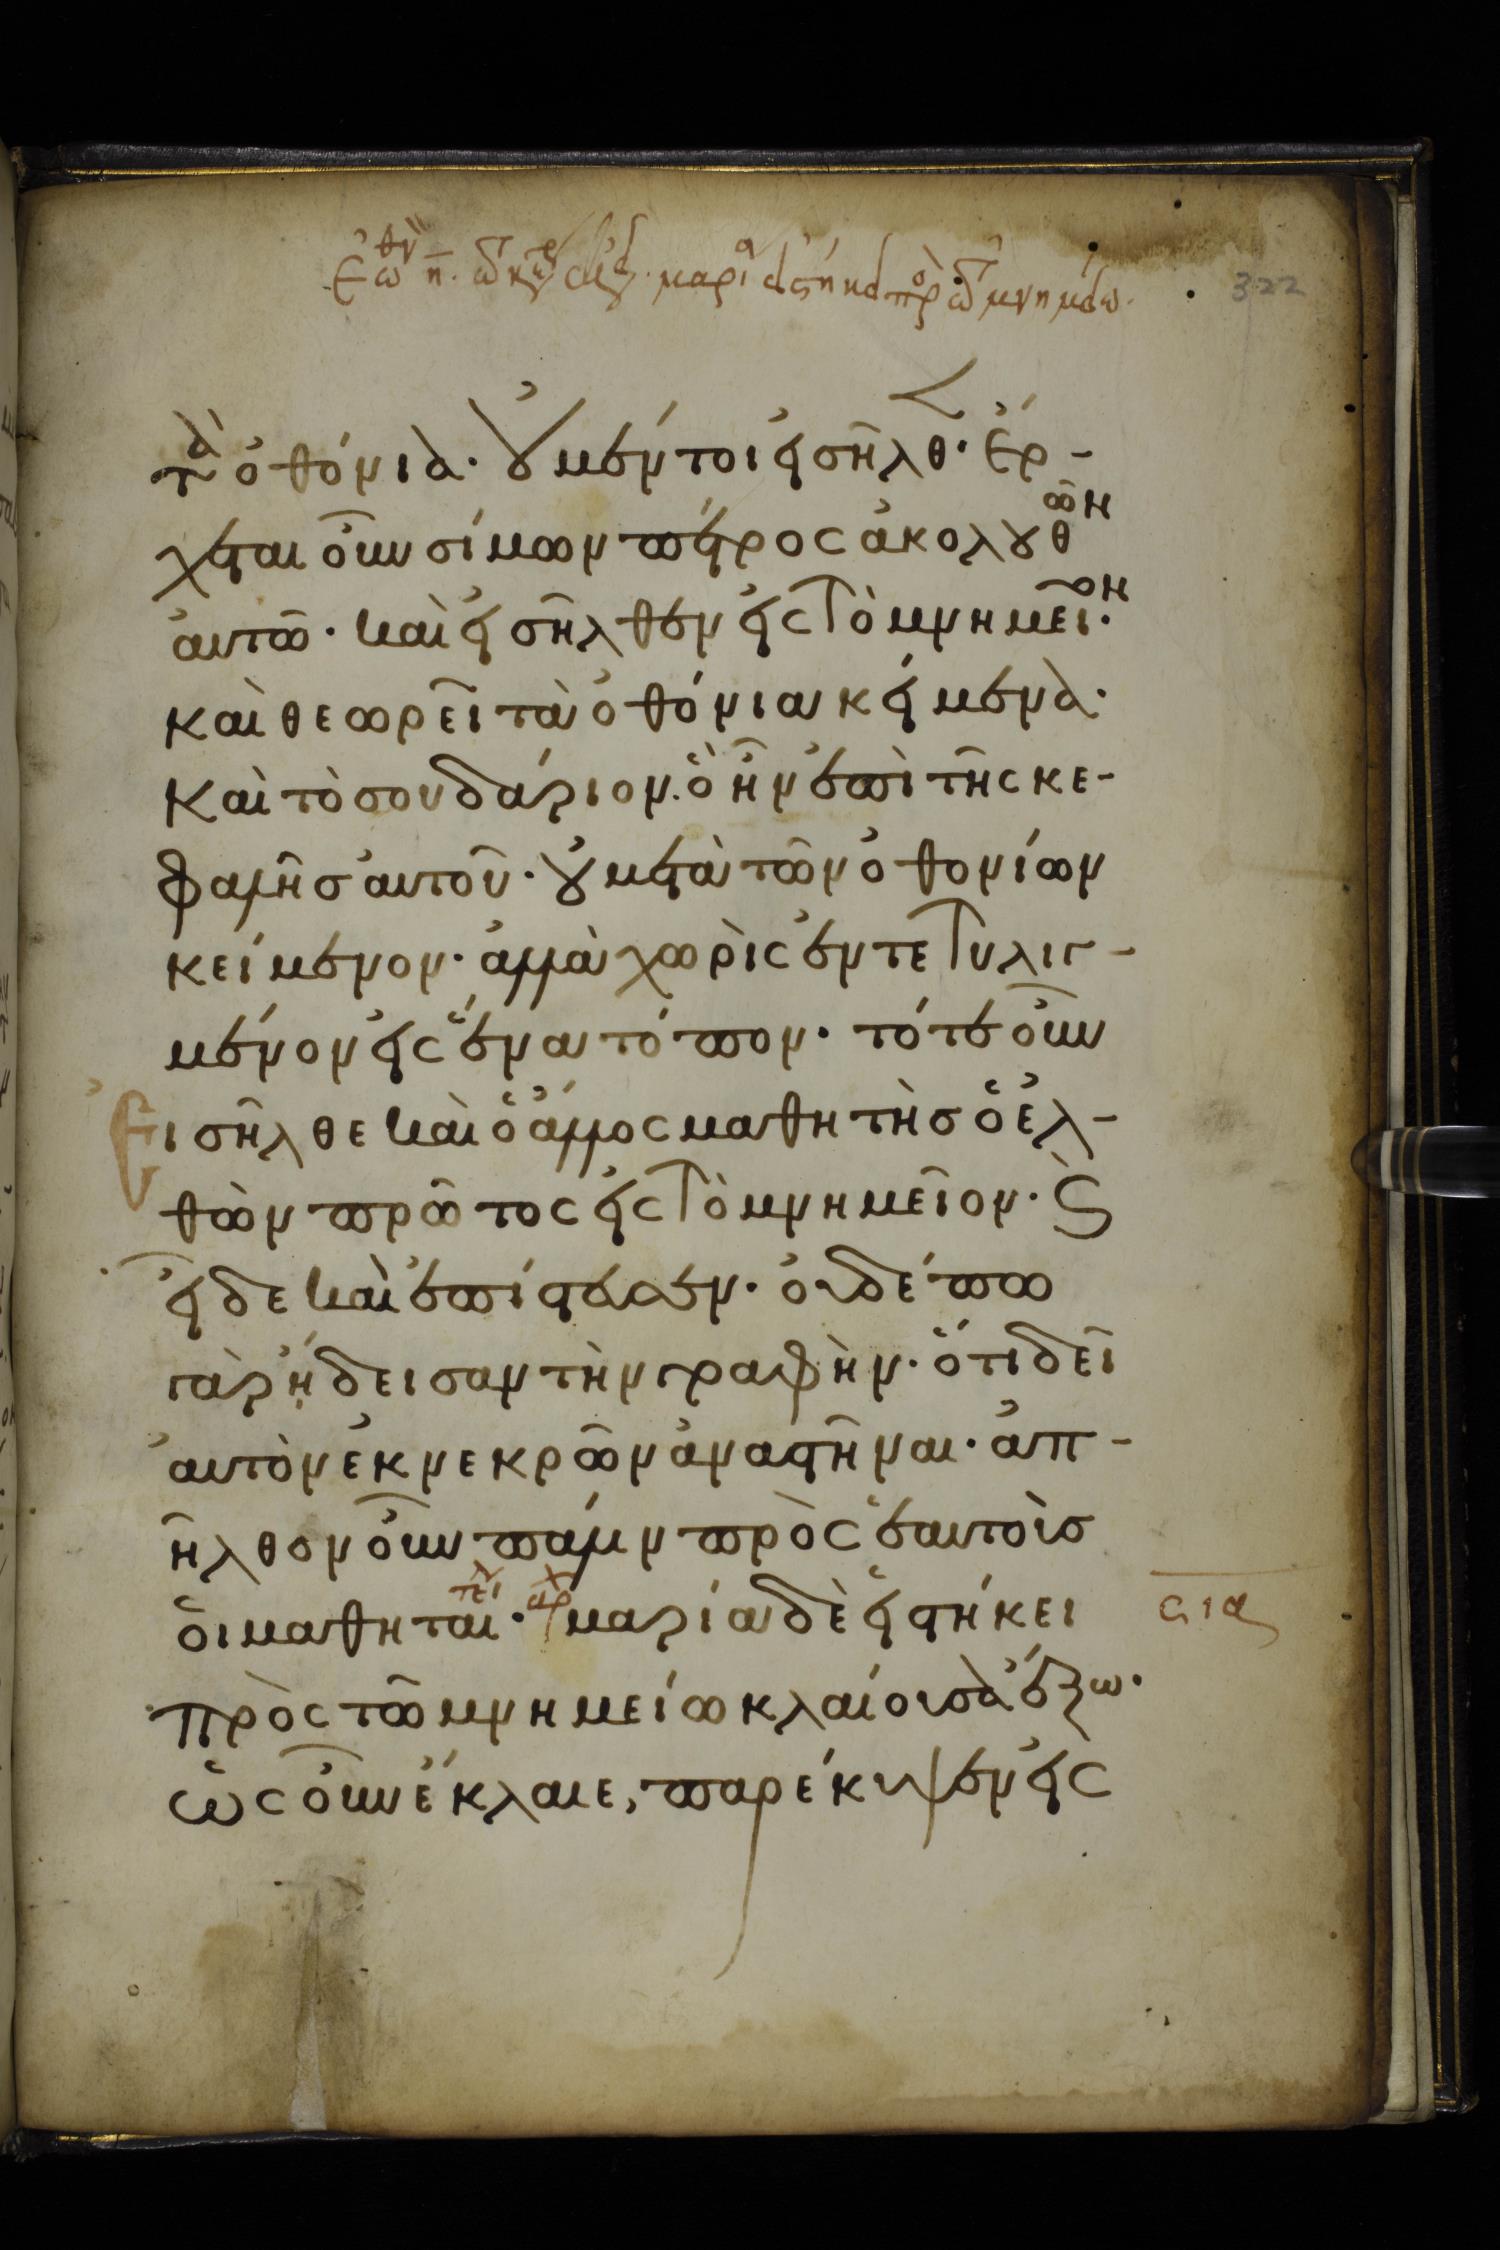 322
τὰ ὀθόνια· οὐ μέντοι εἰσῆλθ· ἔρ-
χεται οὖν σίμων πέτρος ἀκολουθῶν
αὐτῶ· καὶ εἰσῆλθεν εἰς τὸ μνημεῖον·
καὶ θεωρεῖ τὰ ὀθόνια κείμενα·
καὶ τὸ σουδάριον. ὃ ἦν ἐπὶ τῆς κε-
φαλῆσ αὐτοῦ· οὐ μετὰ τῶν ὀθονίων
κείμενον· ἀλλὰ χωρὶς ἐντετυλιγ-
μένον εἰς ἕνα τόπον· τότε οὖν
εἰσῆλθε καὶ ὁ ἄλλος μαθητὴσ ὁ ἐλ-
θὼν πρῶτος εἰς τὸ μνημεῖον· ϛ
εἶδε καὶ ἐπίστευσεν· οὐδέπω
γὰρ ἤ̣δεισαν τὴν γραφὴν· ὅτι δεῖ
αὐτὸν ἐκ νεκρῶν ἀναστῆναι· ἀπ-
ῆλθον οὖν πάλιν πρὸς ἑαυτοὺσ
ὁι μαθηταί· μαρία δὲ εἱστήκει
πρὸς τῶ μνημείω κλαίουσα ἔξω·
ὡς οὖν ἔκλαιε, παρέκυψεν εἰς